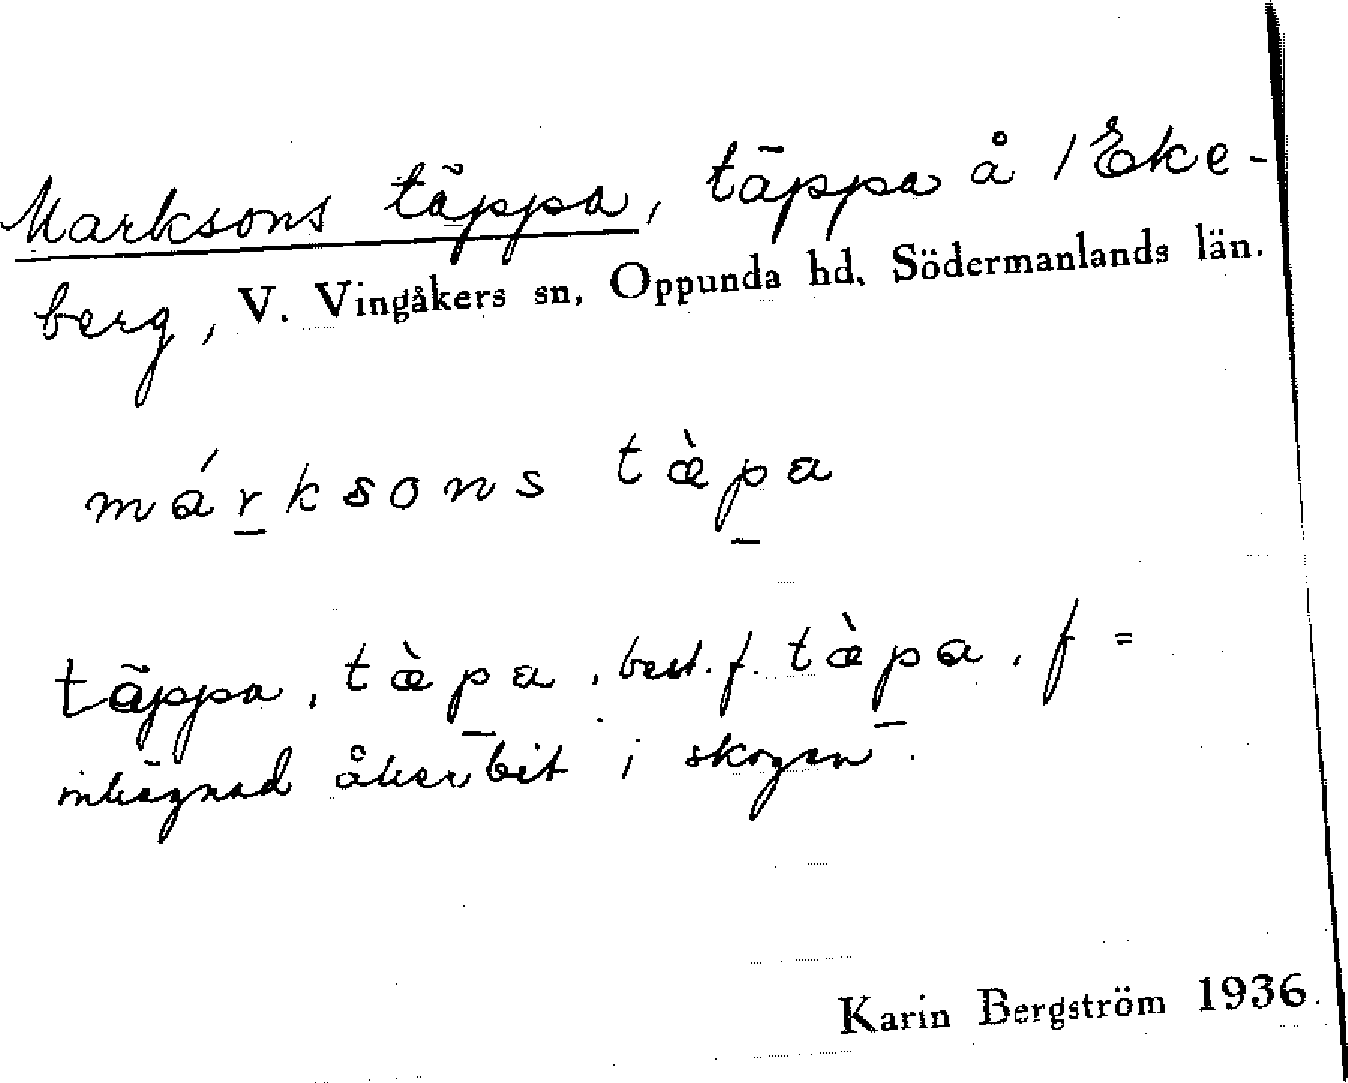 Marksons täppa, täppa å 1 Eke-
berg, V. Vingåkers sn, Oppunda hd, Södermanlands län.
márksons tæ̀pa
täppa, tæ̀pa, best. f. tæ̀pa, f =
inhägnad åkerbit i skogen.
Karin Bergström 1936.